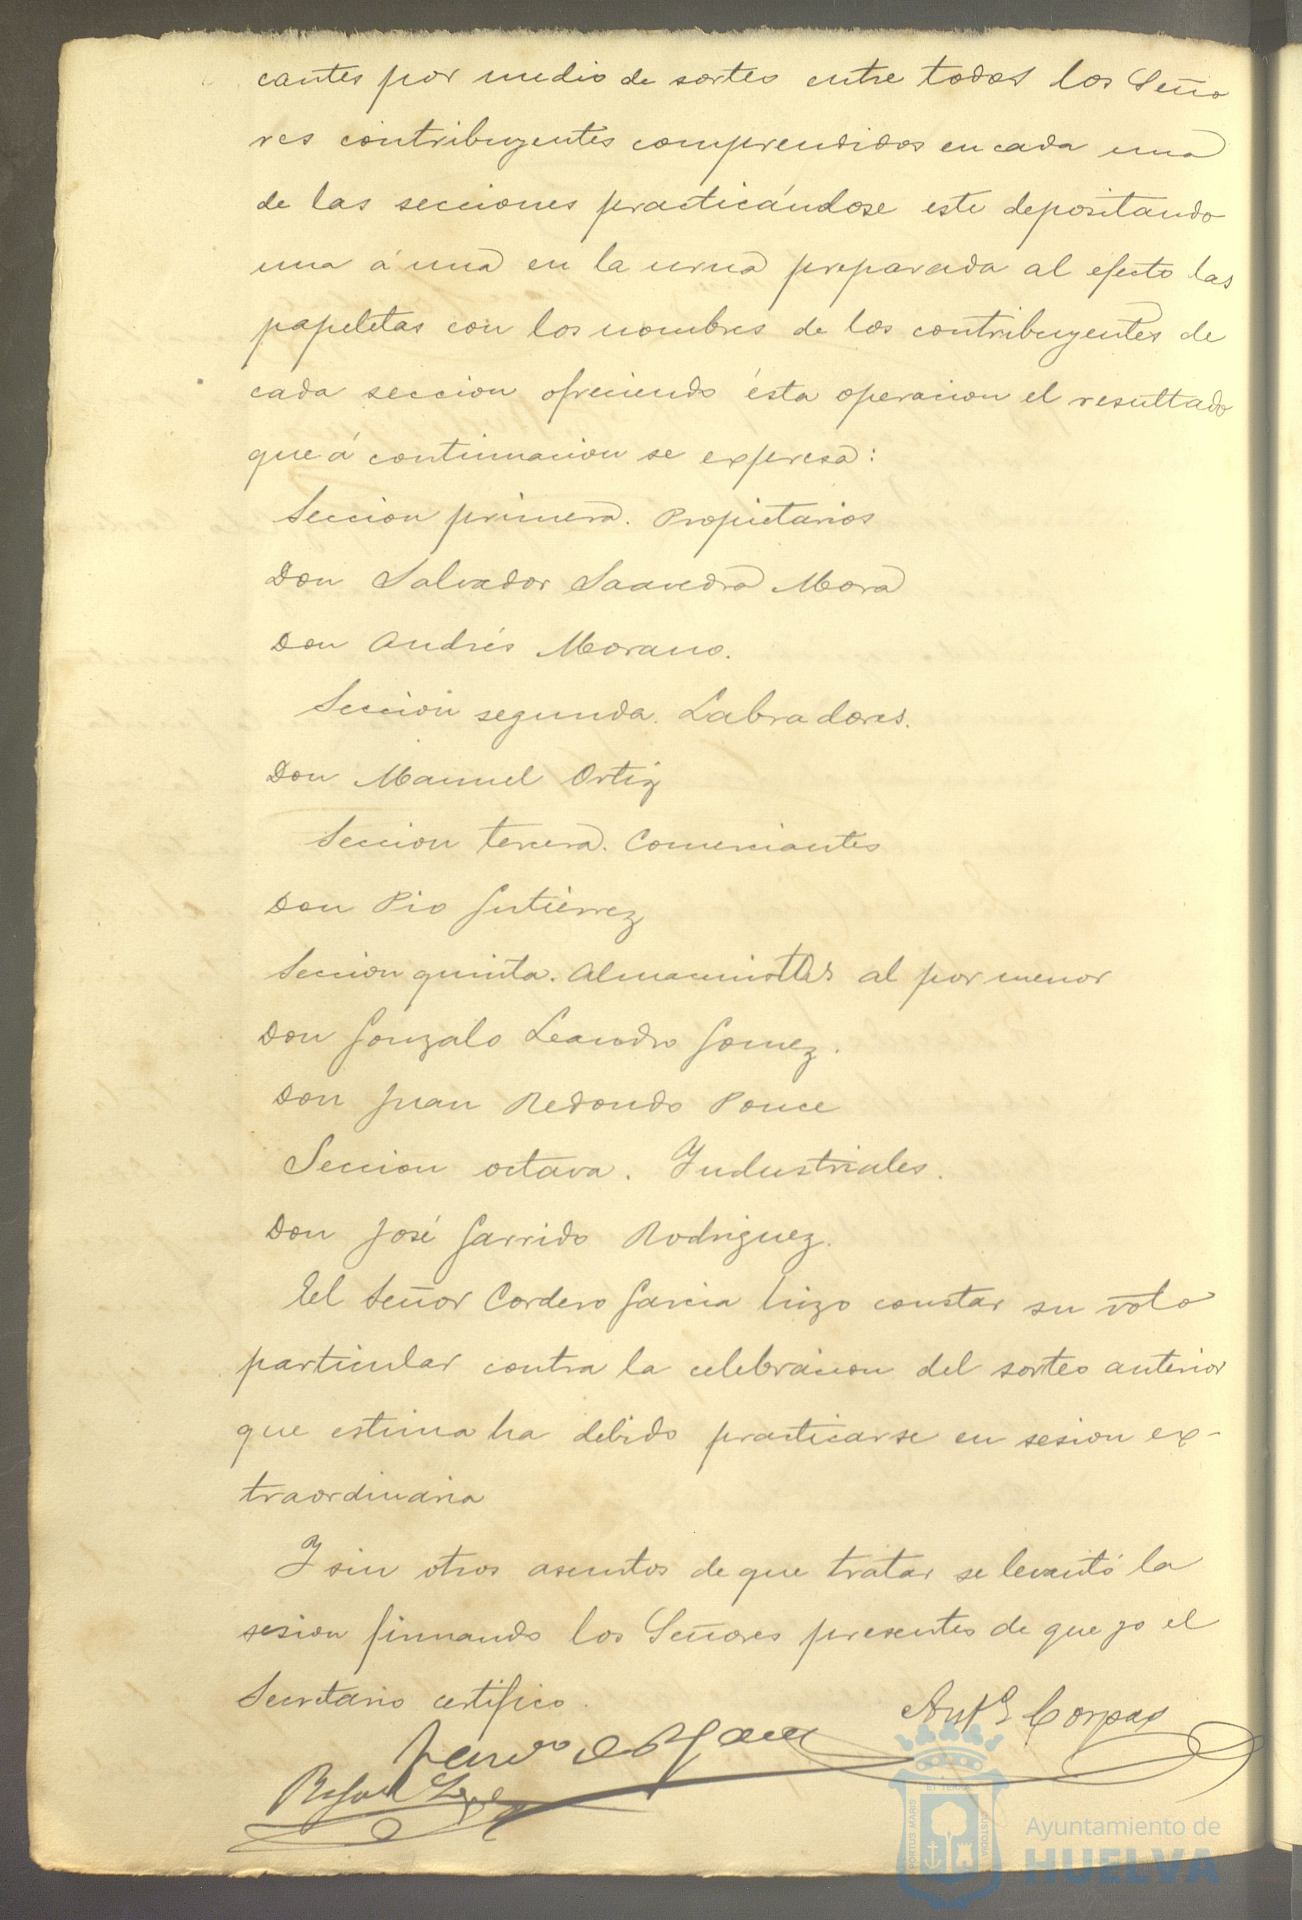 cantes por medio de sorteo entre todos los Seño
res contribuyentes comprendidos en cada una
de las secciones practicándose este depositando
una á una en la urna preparada al efecto las
papeletas con los nombres de los contribuyentes de
cada seccion ofreciendo ésta operacion el resultado
que á continuacion se expresa:
Seccion primera. Propietarios
Don Salvador Saavedra Mora
Don Andrés Morano.
Seccion segunda. Labradores.
Don Manuel Ortiz
Seccion tercera. Comerciantes
Don Pio Gutiérrez
Seccion quinta. Almacenistas al por menor
Don Gonzalo Leandro Gomez.
Don Juan Redondo Ponce
Seccion octava. Industriales.
Don José Garrido Rodriguez.
El Señor Cordero Garcia hizo constar su voto
particular contra la celebracion del sorteo anterior
que estima ha debido practicarse en sesion ex-
traordinaria
Y sin otros asuntos de que tratar se levantó la
sesion firmando los Señores presentes de que yo el
Secretario certifico.
Corpas
Rafael
PORTUS MARIS
ET TERRAE
CUSTODIA
Ayuntamiento de
HUELVA